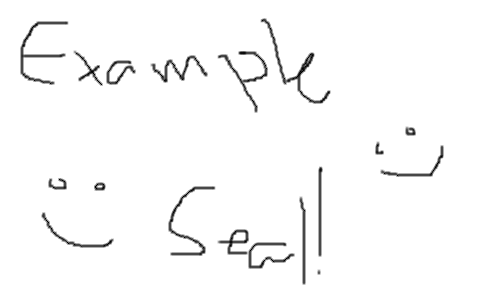 Example
Seal!